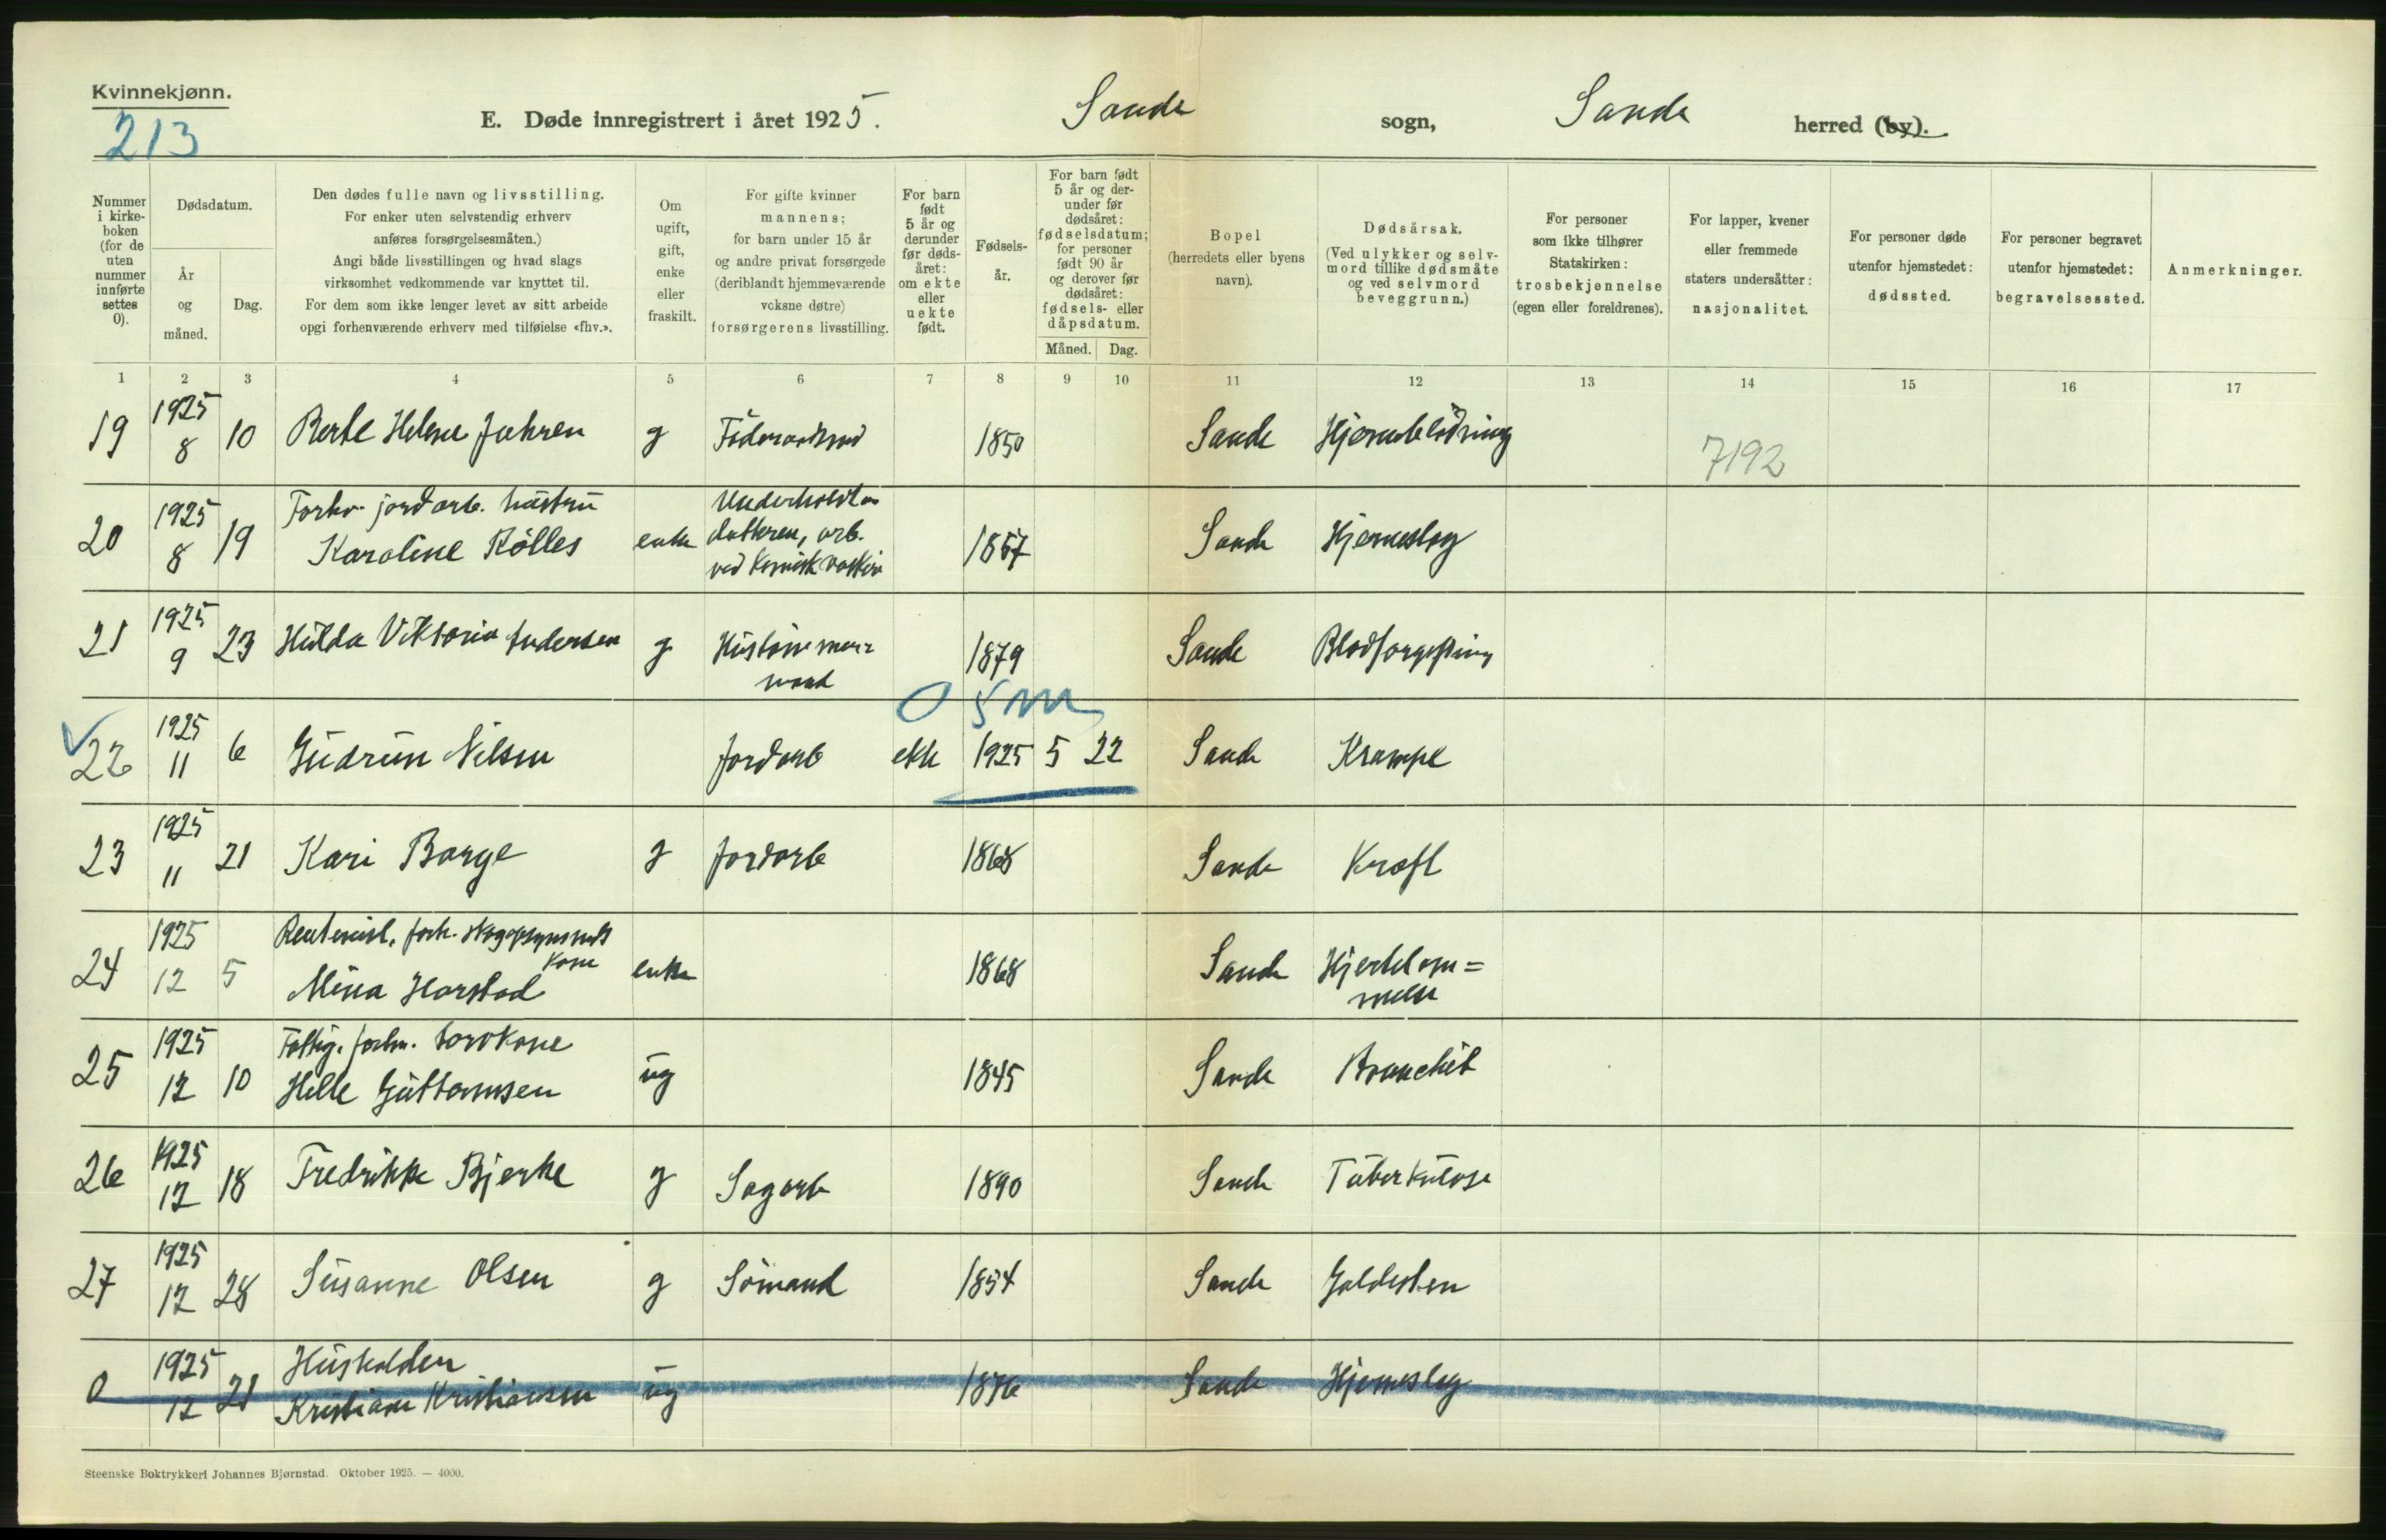 Kvinnekjønn.
213
E. Døde innregistrert i året 1925. Sande sogn, Sande herred (by).
Nummer i kirkeboken (for de uten nummer innførte settes 0).
Dødsdatum.
År og måned.
Dag.
Den dødes fulle navn og livsstilling.
For enker uten selvstendig erhverv
anføres forsørgelsesmåten.)
Angi både livsstillingen og hvad slags
virksomhet vedkommende var knyttet til.
For dem som ikke lenger levet av sitt arbeide
opgi forhenværende erhverv med tilføielse «fhv.».
Om
ugift,
gift,
enke
eller
fraskilt.
For gifte kvinner
mannens;
for barn under 15 år
og andre privat forsørgede
(deriblandt hjemmeværende
voksne døtre)
forsørgerens livsstilling.
For barn
født
5 år og
derunder
før døds-
året:
om ekte
eller
uekte
født.
Fødsels-
år.
For barn født
5 år og der-
under før
dødsåret:
fødselsdatum;
for personer
født 90 år
og derover før
dødsåret:
fødsels- eller
dåpsdatum.
Måned. Dag.
Bopel
(herredets eller byens
navn).
Dødsårsak.
(Ved ulykker og selv-
mord tillike dødsmåte
og ved selvmord
beveggrunn.)
For personer
som ikke tilhører
Statskirken:
trosbekjennelse
(egen eller foreldrenes).
For lapper, kvener
eller fremmede
staters undersåtter:
nasjonalitet.
For personer døde
utenfor hjemstedet:
dødssted.
For personer begravet
utenfor hjemstedet:
begravelsessted.
Anmerkninger.
1 2 3 4 5 6 7 8 9 10 11 12 13 14 15 16 17
19 1925 8 10 Berte Helene Juhren g 1850 Sande Hjerneblødning
7192
Forhv. jordarb. hustru
20 1925 8 19 Karoline Rölles enke datteren, arb. 1857 Sande Hjerneslag
ved Kemisk vaskeri
21 1925 9 23 Hilda Viktoria Andersen g 1879 Sande Blodforgiftning
0 5 m
22 1925 11 6 Gudrun Nilsen Jordarb ekte 1925 5 22 Sande Krampe
23 1925 11 21 Kari Borge g Jordarb 1868 Sande Kræft
24 1925 12 5 Mina Harstad enke 1868 Sande Hjertelam=
melse
Fattig. forhv.
25 1925 12 10 Helle Guttormsen ug 1845 Sande Bronchit
26 1925 12 18 Fredrikke Bjerke g Sagarb 1890 Sande Tuberkulose
27 1925 12 28 Susanne Olsen g Sömand 1854 Sande Galdesten
Husholder
0 1925 12 21 Kristiane Kristiansen ug 1876 Sande Hjerneslag
Steenske Boktrykkeri Johannes Bjørnstad. Oktober 1925. — 4000.